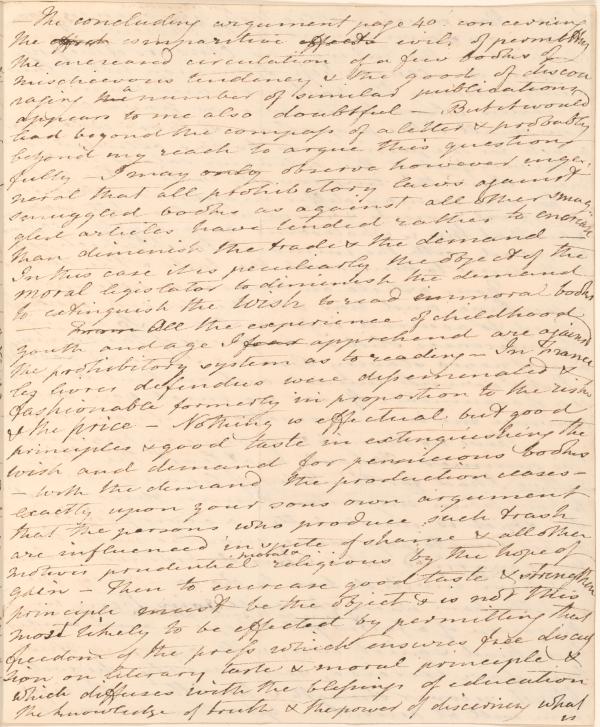 – The concluding argument page 40. concerning
the comparative effects evils of permitting
the increased circulation of a few books of
mischievous tendency & the good of discou
raging the a number of similar publications
appears to me also doubtful – But it would
lead beyond the compass of a letter & probably
beyond my reach to argue this question
fully – I may only observe however in ge-
neral that all prohibitory laws against
smuggled books as against all other smug
gled articles have tended rather to encrease
than diminish the trade & the demand –
In this case it is peculiarly the object of the
moral legislator to diminish the demand
to extinguish the wish to read immoral books
– From All the experience of childhood
youth and age I fear apprehend are against
the prohibitory system as to reading – In France
les livres defendus were dissemenated &
fashionable formerly in proportion to the risk
& the price – Nothing is effectual but good
principles & good taste in extinguishing the
wish and demand for pernicious books
– with the demand the production ceases –
exactly upon your sons own argument
that the persons who produce such trash
are influenced in spite of shame & all other
motives prudential moral & religious by the hope of
gain – Then to encrease good taste & strengthen
principle must be the object & is not this
most likely to be effected by permitting that
freedom of the press which ensures free discus
sion on literary taste & moral principle &
which diffuses with the blessings of education
the knowledge of truth & the power of discerning what
is